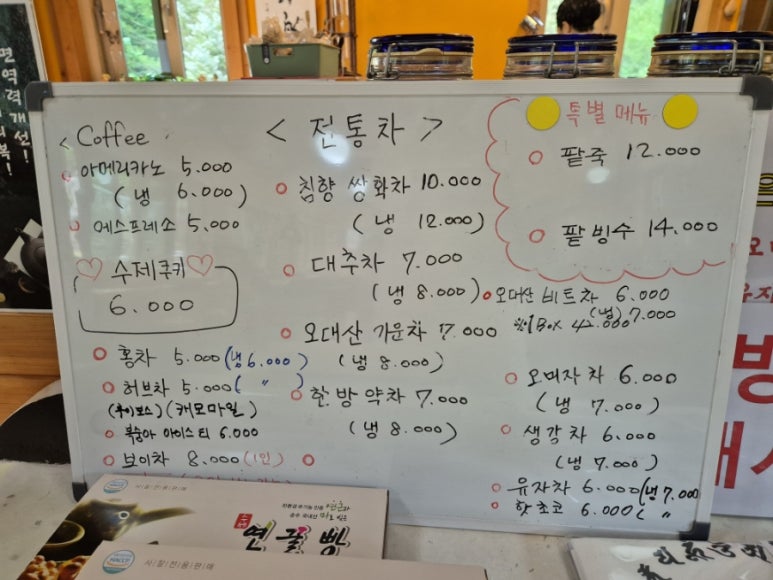 면역력개선!
< Coffee
아메리카노 5.000
( 냉 6.000 )
에스프레소 5.000
♡ 수제쿠키 ♡
6.000
홍차 5.000 (냉 6.000 )
허브차 5.000 ( 〃 )
(루이보스) (캐모마일)
복숭아 아이스티 6.000
보이차 8.000 (1인)
< 전통차 >
침향 쌍화차 10.000
( 냉 12.000)
대추차 7.000
(냉 8.000)
오대산 가운차 7.000
(냉 8.000)
한방약차 7.000
(냉 8.000)
특별 메뉴
팥죽 12.000
팥빙수 14.000
오대산 비트차 6.000
(냉) 7.000
※1Box 42.000
오미자차 6.000
(냉 7.000)
생강차 6.000
(냉 7.000)
유자차 6.000 (냉 7.000
핫쵸코 6.000 ( 〃
사찰전용판매
연꿀빵
HACCP
사찰전용판매